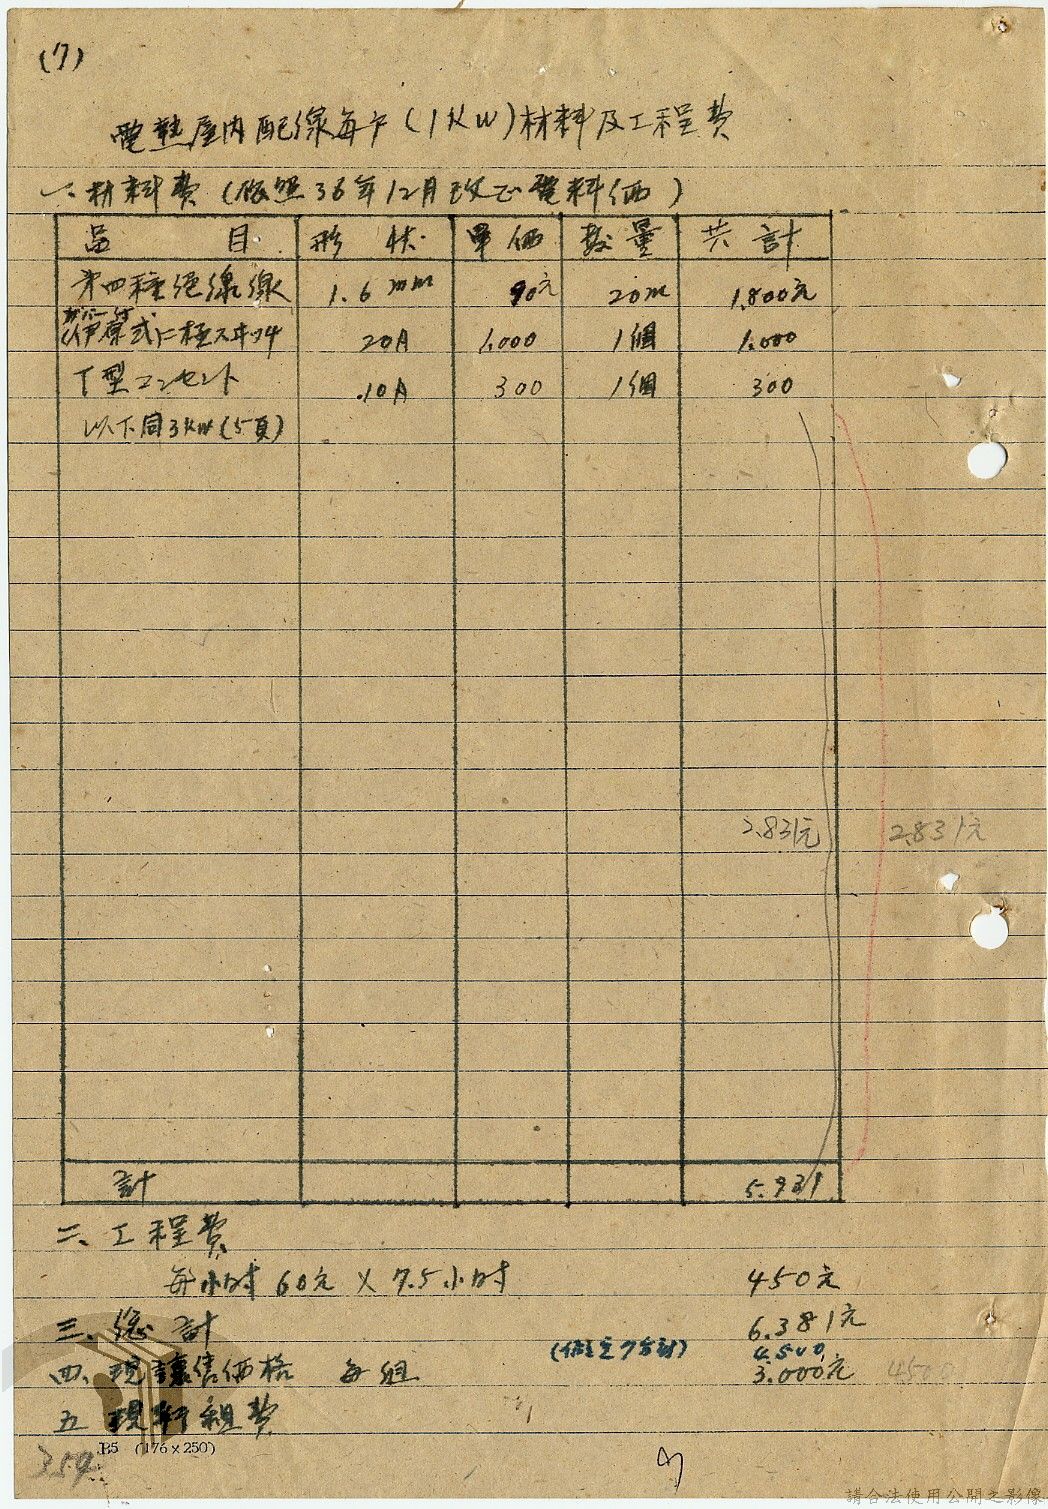 (7)
電熱屋内配線每戶(1KW)材料及工程費
一、材料費(依照36年12月改正電料価)
品 目 形 狀 單価 数量 共 計
第四種絕緣線 1.6mm 90元 20m 1,800元
カバー付
(伊原式二極スヰッチ 20A 1,000 1個 1,000
T型コンセント 10A 300 1個 300
以下同3KW(5頁)
2.831元 2.831元
計 5.931
二、工程費
每小时60元×7.5小时 450元
三、總 計 6.381元
(假定7台計) 4.500
四、現讓售価格 每組 3.000元 4500
五 現行租費
B5 (176×250)
359
請合法使用公開之影像